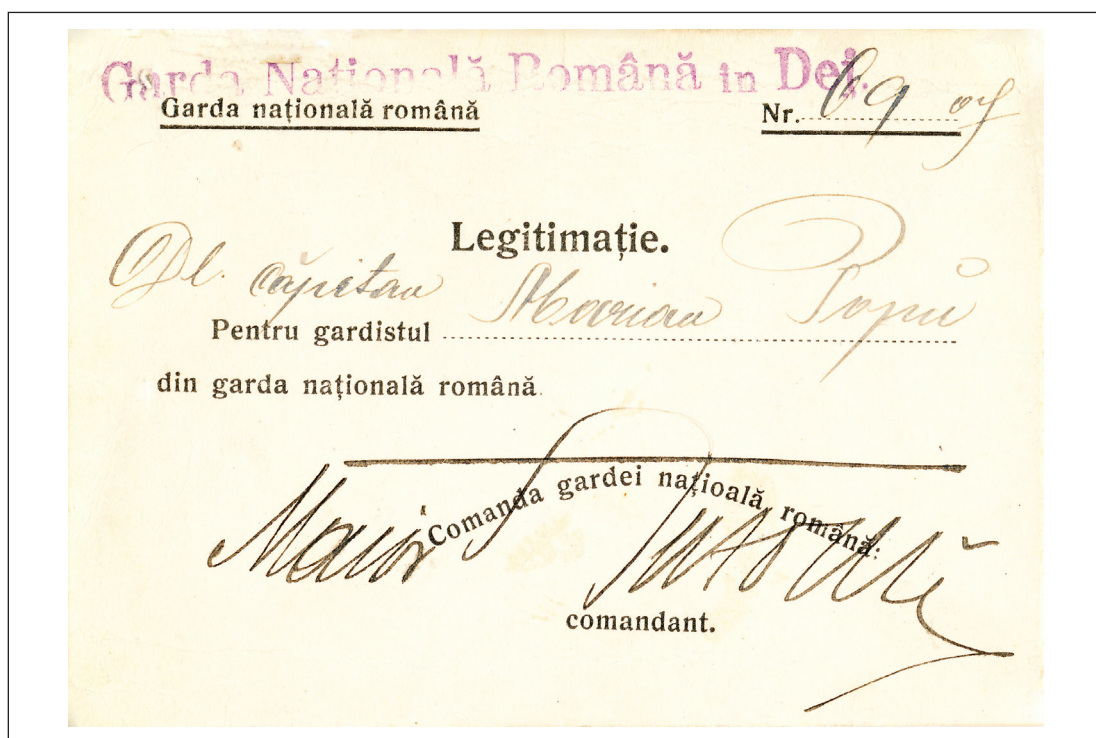 Garda Națională Română in Dej.
Garda națională română
Nr. 69
Legitimație.
Dl. căpitan Marian Popu
Pentru gardistul
din garda națională română.
Comanda gardei națioală română:
Maior
comandant.